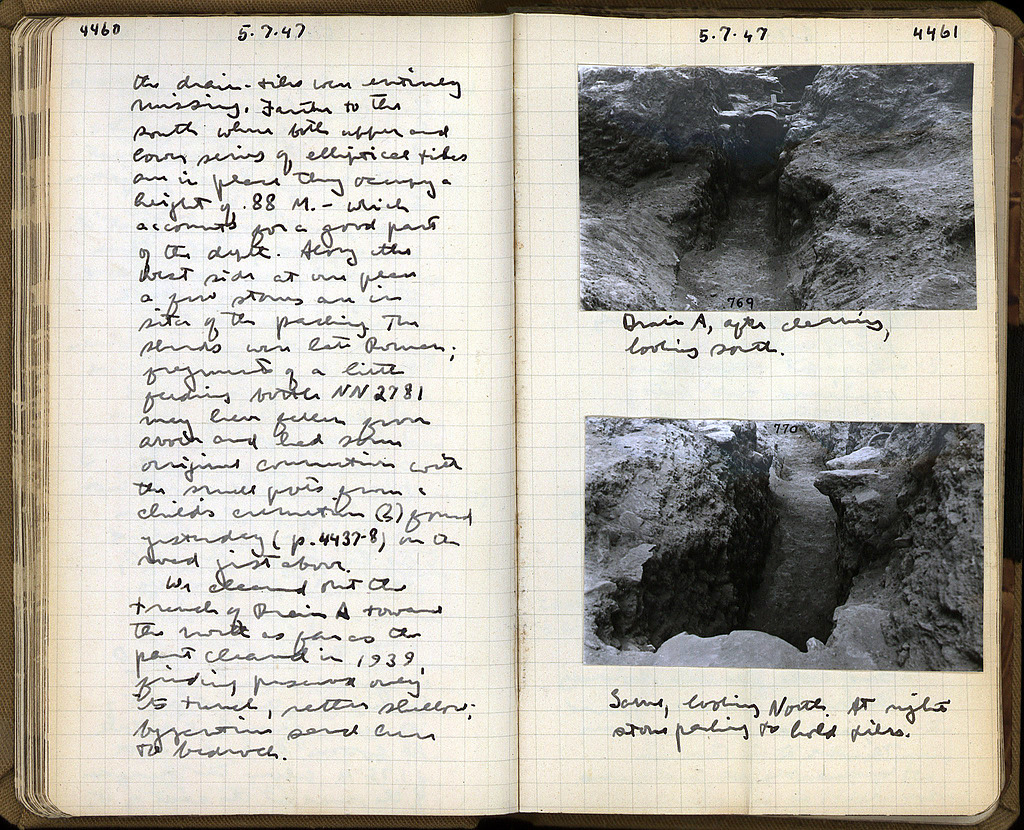 4460
5.7.47
the drain-tiles were entirely
missing. Further to the
south where both upper and
lower series of elliptical tiles
are in place they occupy a
height of .88 M. - which
accounts for a good part
of the depth. Along the
West side at one place
a few stones are in
situ of the packing. The
sherds were late Roman;
fragments of a little
feeding bottle NN 2781
may have fallen from
above and had some
original connection with
the small pots from a
child's cremation (?) found
yesterday (p. 4437-8) in the
road just above.
We cleaned out the
trench of Drain A toward
the north as far as the
part cleared in 1939,
finding preserved only
its trench, rather shallow;
byzantine sand here
to bedrock.
5.7.47
4461
769
Drain A, after cleaning,
looking south.
770
Same, looking North. At right
stone packing to hold tiles.